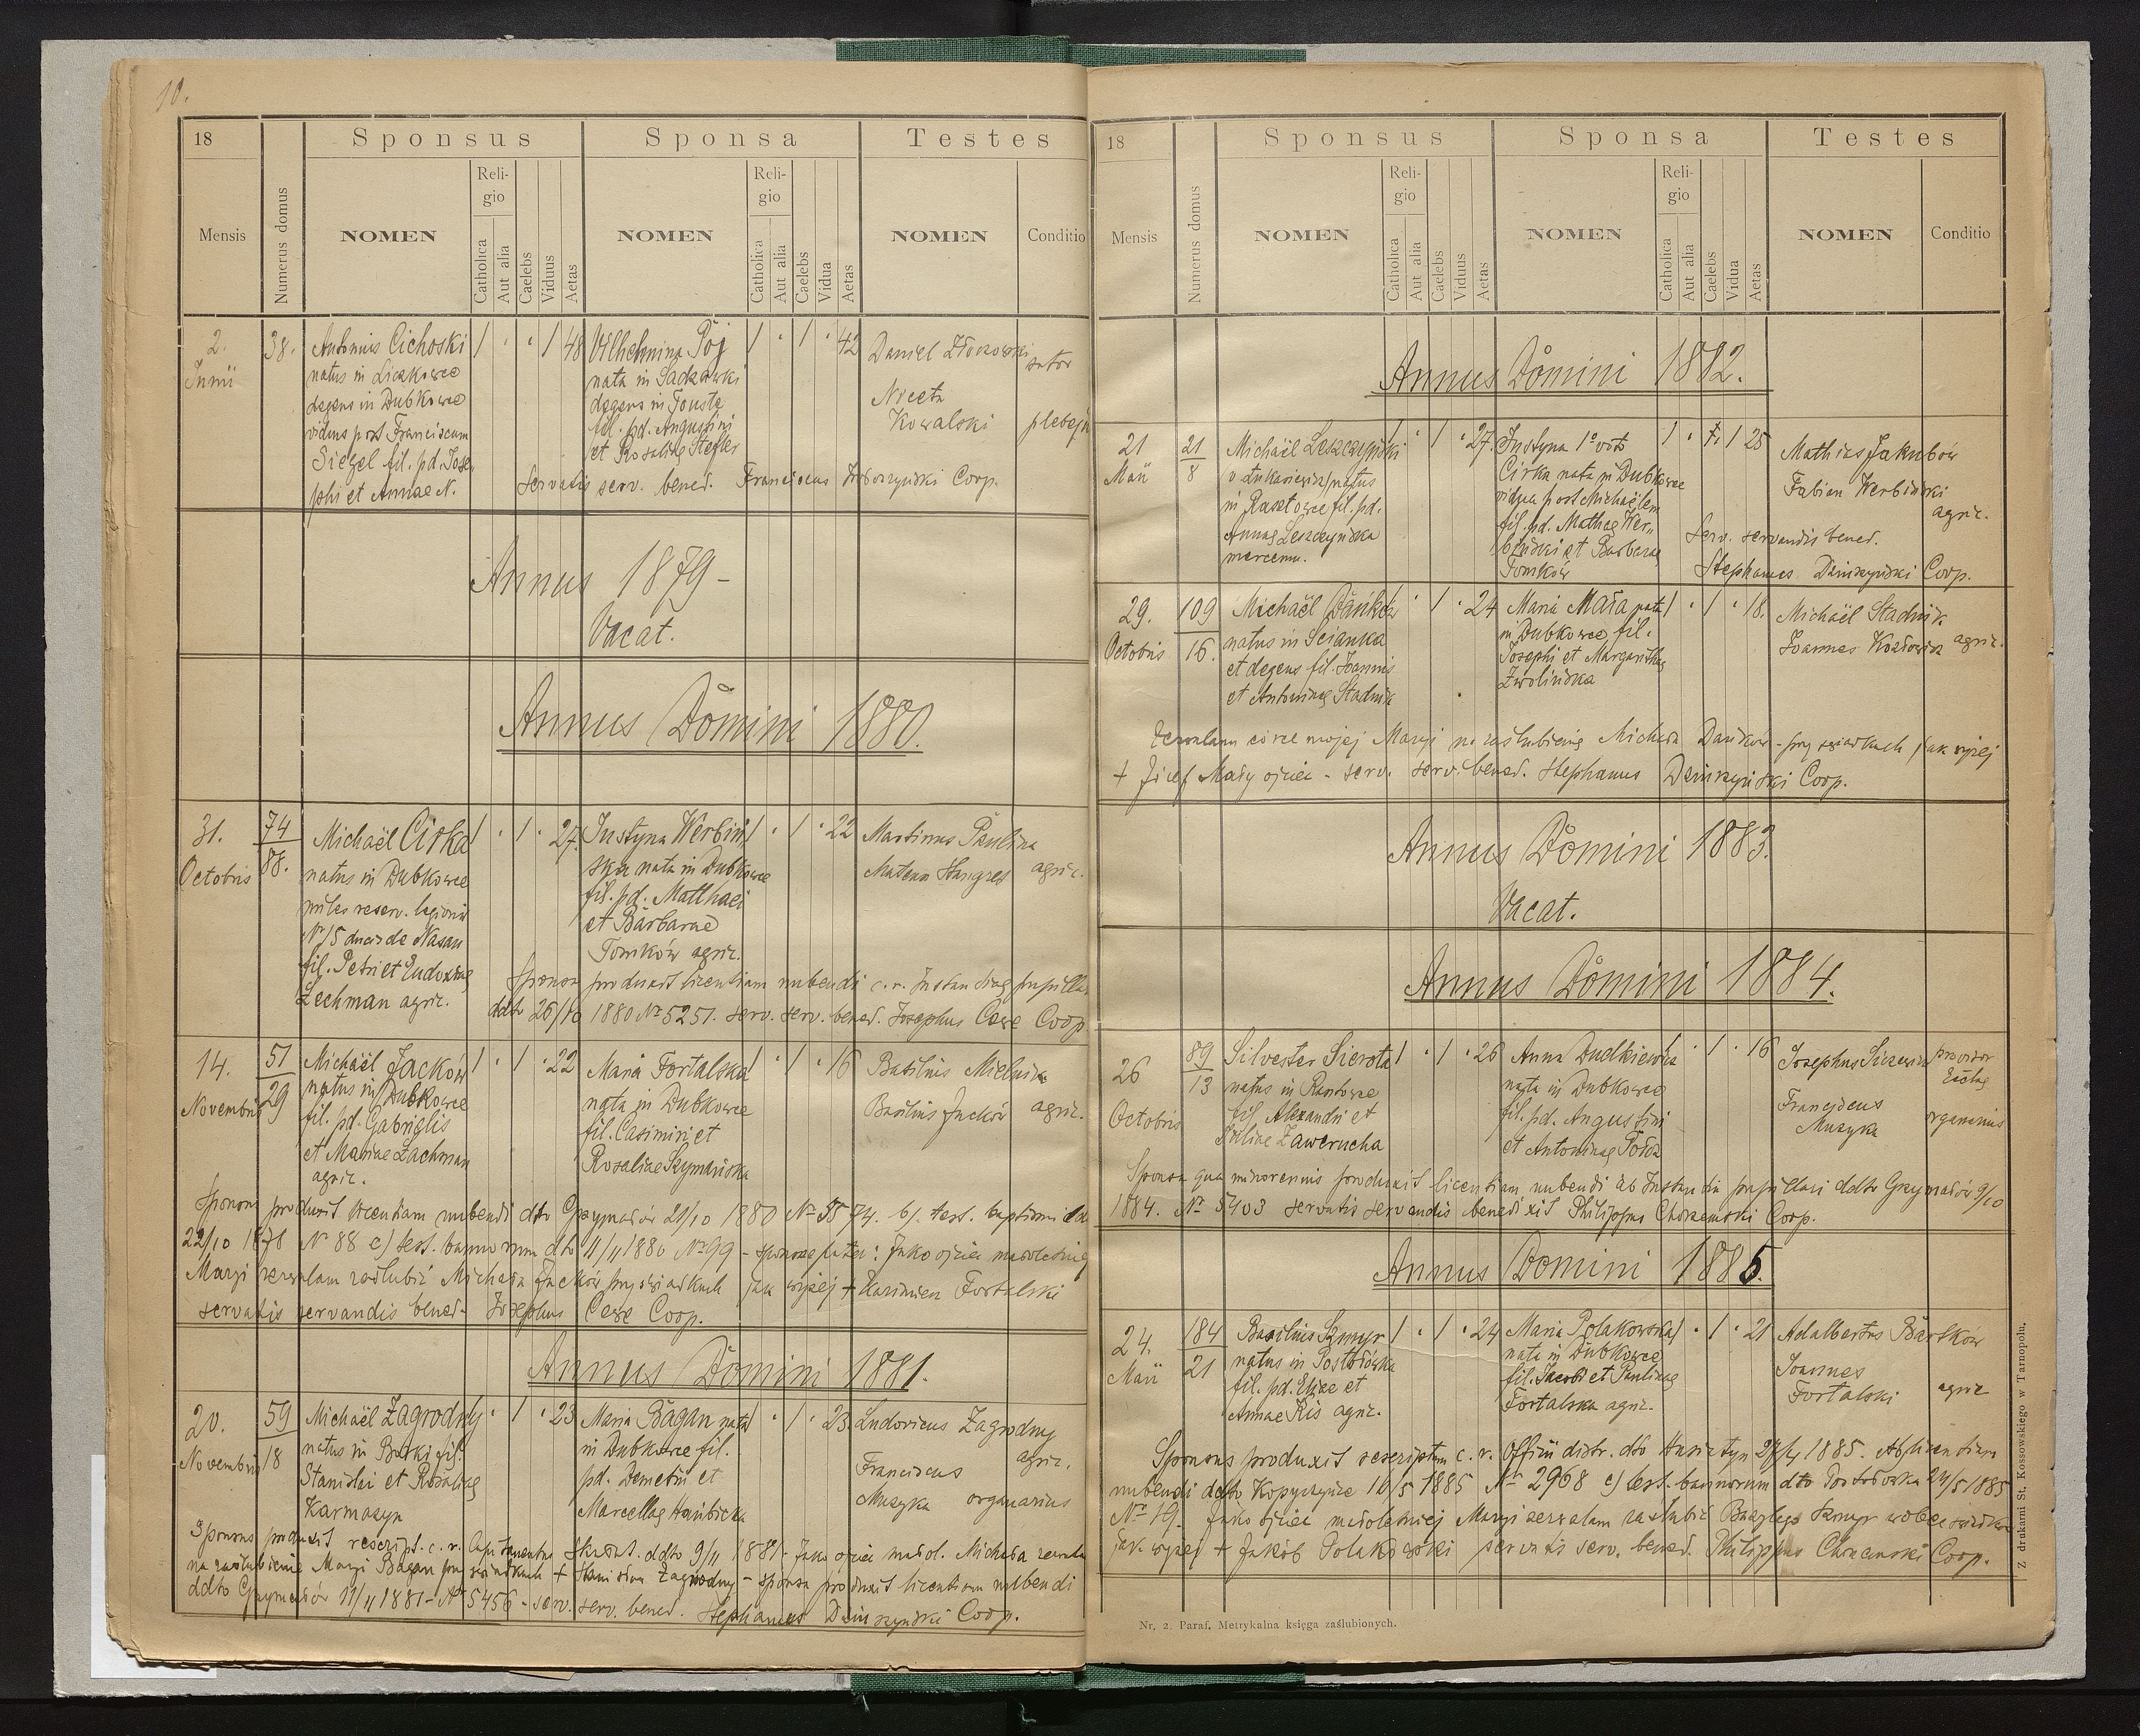 10.
18
Sponsus
Sponsa
Testes
Mensis
Numerus domus
NOMEN
Religio
Catholica
Aut alia
Caelebs
Viduus
Aetas
NOMEN
Religio
Catholica
Aut alia
Caelebs
Vidua
Aetas
NOMEN
Conditio
2.
Junii
38.
Antonius Cichoski
natus in Liczkowce
degens in Dubkowce
viduus post Franciscam
Siegel fil. pd. Jose
phi et Annae N.
1 · · 1 48
Vilhelmina Pöj
nata in Sadzawki
degens in Touste
fil. pd. Augustini
et Rosaliae Stefler
1 · 1 · 42
Daniel
sutor
Niceta
Kowalski
Servatis serv. bened. Franciscus Coop.
Annus 1879 -
Vacat.
Annus Domini 1880.
31.
Octobris
74
88.
Michaël Cirka
natus in Dubkowce
miles reserv. legionis
Nr 15 ducis de Nasau
fil. Petri et Eudoxiae
Lechman agric.
1 · 1 · 27
Justyna Werbiń
ska nata in Dubkowce
fil. pd. Matthaei
et Barbarae
Tomków agric.
1 · 1 · 22
Martinus Paulina
agric.
Sponsa produxit licentiam nubendi c. r.
ddto 26/10 1880 Nr 5251. serv. serv. bened. Josephus Coop
14.
Novembris
51
29
Michaël Jacków
natus in Dubkowce
fil. pd. Gabrielis
et Mariae Lachman
agric.
1 · 1 · 22
Maria Fortalska
nata in Dubkowce
fil. Casimiri et
Rosaliae Szymańska
1 · 1 · 16
Basilius Mielnik
Basilius Jacków
agric.
Sponsus produxit licentiam nubendi dto Grzymałów 21/10 1880
22/10 1878 Nr 88 c) test. bannorum dto 11/11 1880 Nr 99 - sponsae pater: Jako ojciec małoletniej
Maryi zezwalam zaślubić Michała Jacków przy świadkach jak wyżej + Kazimierz Fortalski
servatis servandis bened. Josephus Coop.
Annus Domini 1881.
20.
Novembris
59
18
Michaël Zagrodny
natus in Burki fil.
Stanislai et Rosaliae
Karmazyn
· 1 · 23
Maria Bagan nata
in Dubkowce fil.
pd. Demetrii et
Marcellae
1 · 1 · 23
Ludovicus Zagrodny
agric.
Franciscus
Muzyka
organarius
Sponsus produxit rescript. c. r. Capitaneatus Skałat. ddto 9/11 1881 - Jako ojciec małol. Michała
na zaślubienie Maryi Bagan przy świadkach + Stanisław Zagrodny - sponsa produxit licentiam nubendi
ddto Grzymałów 11/11 1881 - Nr 5456 - serv. serv. bened. Stephanus Coop.
18
Sponsus
Sponsa
Testes
Mensis
Numerus domus
NOMEN
Religio
Catholica
Aut alia
Caelebs
Viduus
Aetas
NOMEN
Religio
Catholica
Aut alia
Caelebs
Vidua
Aetas
NOMEN
Conditio
Annus Domini 1882.
21
Maii
21
8
Michaël Leszczyński
natus
in Rasztowce fil. pd.
Annae Leszczyńska
mercenn.
1 · 1 · 27
Justyna 1º voto
Cirka nata in Dubkowce
vidua post Michaëlem
fil. pd. Mathiae Wer
biński et Barbarae
Tomków
1 25
Mathias Jakubów
Fabian Werbiński
agric.
Serv. servandis bened.
Stephanus Coop.
29.
Octobris
109
16.
Michaël Dańków
natus in Scianka
et degens fil. Joannis
et Antoninae Stadnik
· 1 · 24
Maria Mała nata
in Dubkowce, fil.
Josephi et Margarithae
Zwolińska
1 · 1 · 18.
Michaël Stadnik
Joannes Kozłowicz
agric.
Zezwalam córce mojej Maryi na zaślubienie Michała Dańków - przy świadkach jak wyżej
+ Józef Mały ojciec - serv. serv. bened. Stephanus Coop.
Annus Domini 1883.
Vacat.
Annus Domini 1884.
26
Octobris
89
13
Silvester Sierota
natus in
fil. Alexandri et
Juliae Zawerucha
1 · 1 · 26
Anna Dudkiewicz
nata in Dubkowce
fil. pd. Augustini
et Antoninae
· 1 · 16
Josephus
provisor
Franciscus
Muzyka
organarius
Sponsa qua minorennis produxit licentiam nubendi ab Instantia pupillari ddto Grzymałów 9/10
1884. Nr 5403 servatis servandis benedixit Philippus Coop.
Annus Domini 1885.
24.
Maii
184
21
Basilius Szmyr
natus in Postołówka
fil. pd. Eliae et
Annae Kis agric.
1 · 1 · 24
Maria Polakowska
nata in Dubkowce
fil. Jacobi et Paulinae
Fortalska agric.
1 · 1 · 21
Adalbertus Bartków
Joannes
Fortalski
agric
Sponsus produxit rescriptum c. r. Officii distr. dto Husiatyn 27/4 1885.
nubendi ddto Kopyczyńce 10/5 1885 Nr 2968 c) test. bannorum dto Postołówka 24/5 1885
Nr 19. Jako ojciec małoletniej Maryi zezwalam zaślubić Bazylego Szmyr wobec świadków
jak wyżej + Jakób Polakowski servatis serv. bened. Philippus Coop.
Nr. 2. Paraf. Metrykalna księga zaślubionych.
Z drukarni St. Kossowskiego w Tarnopolu.